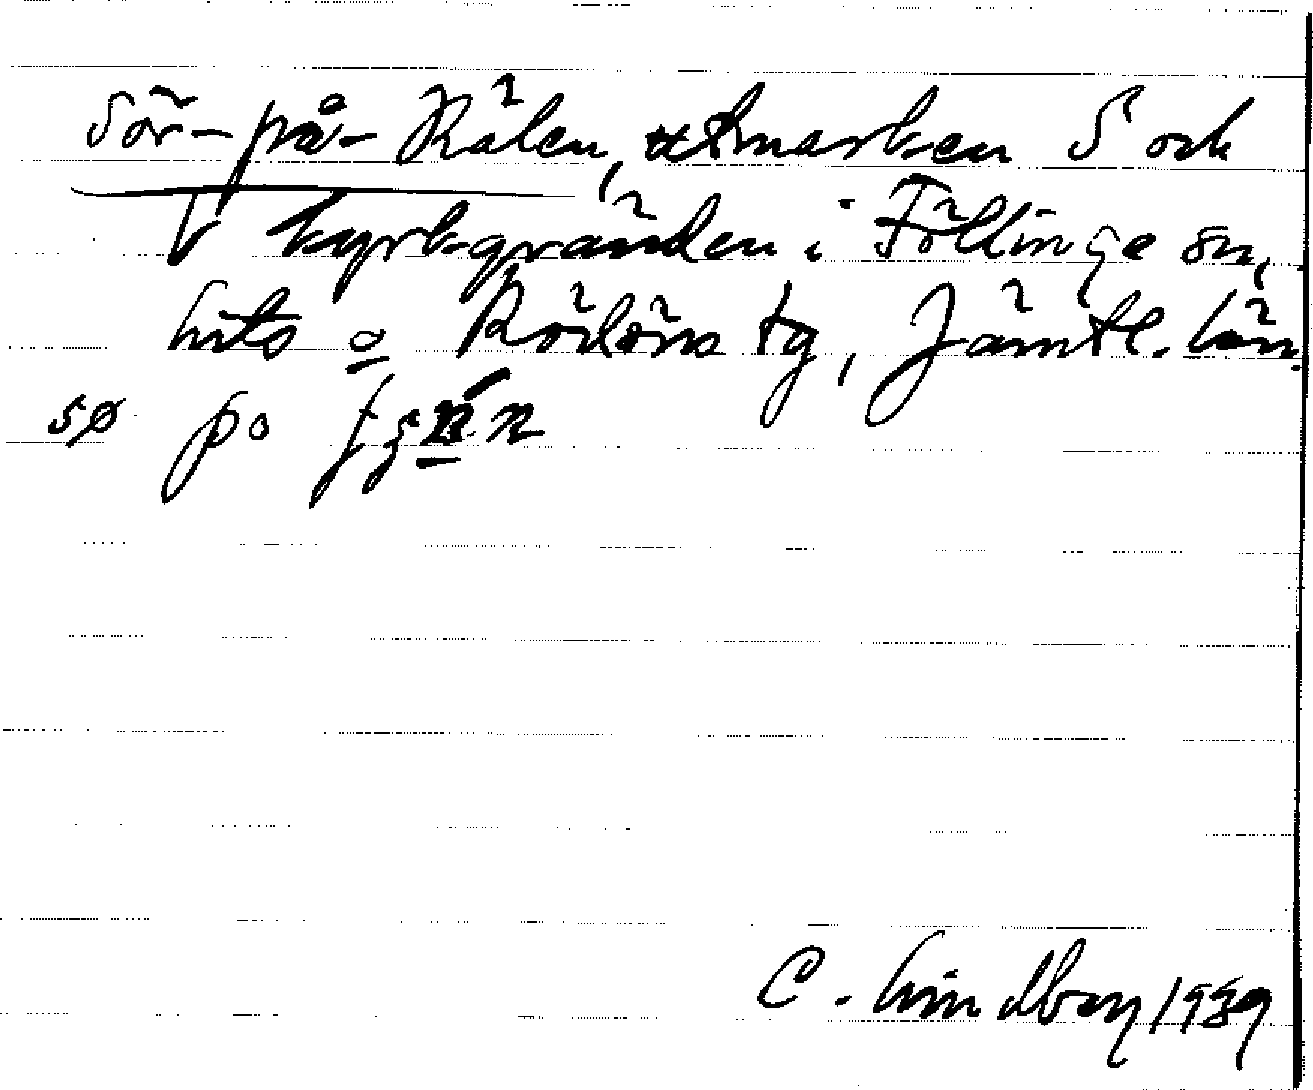 Sör-på-Kälen, utmarken S och
V kyrkgränden i Föllinge sn,
hits o Rödöns tg, Jämtl. län.
sø på
C. Lindberg 1939